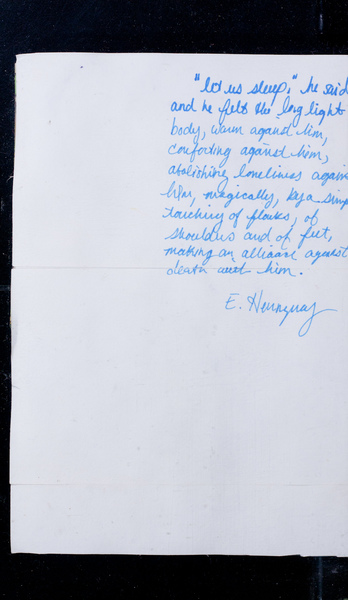 "let us sleep," he said
and he felt the long light
body, warm against him,
comforting against him,
abolishing loneliness again
him, magically, by a simp
touching of flanks, of
shoulders and of feet,
making an alliance against
death with him.
E. Hemingway